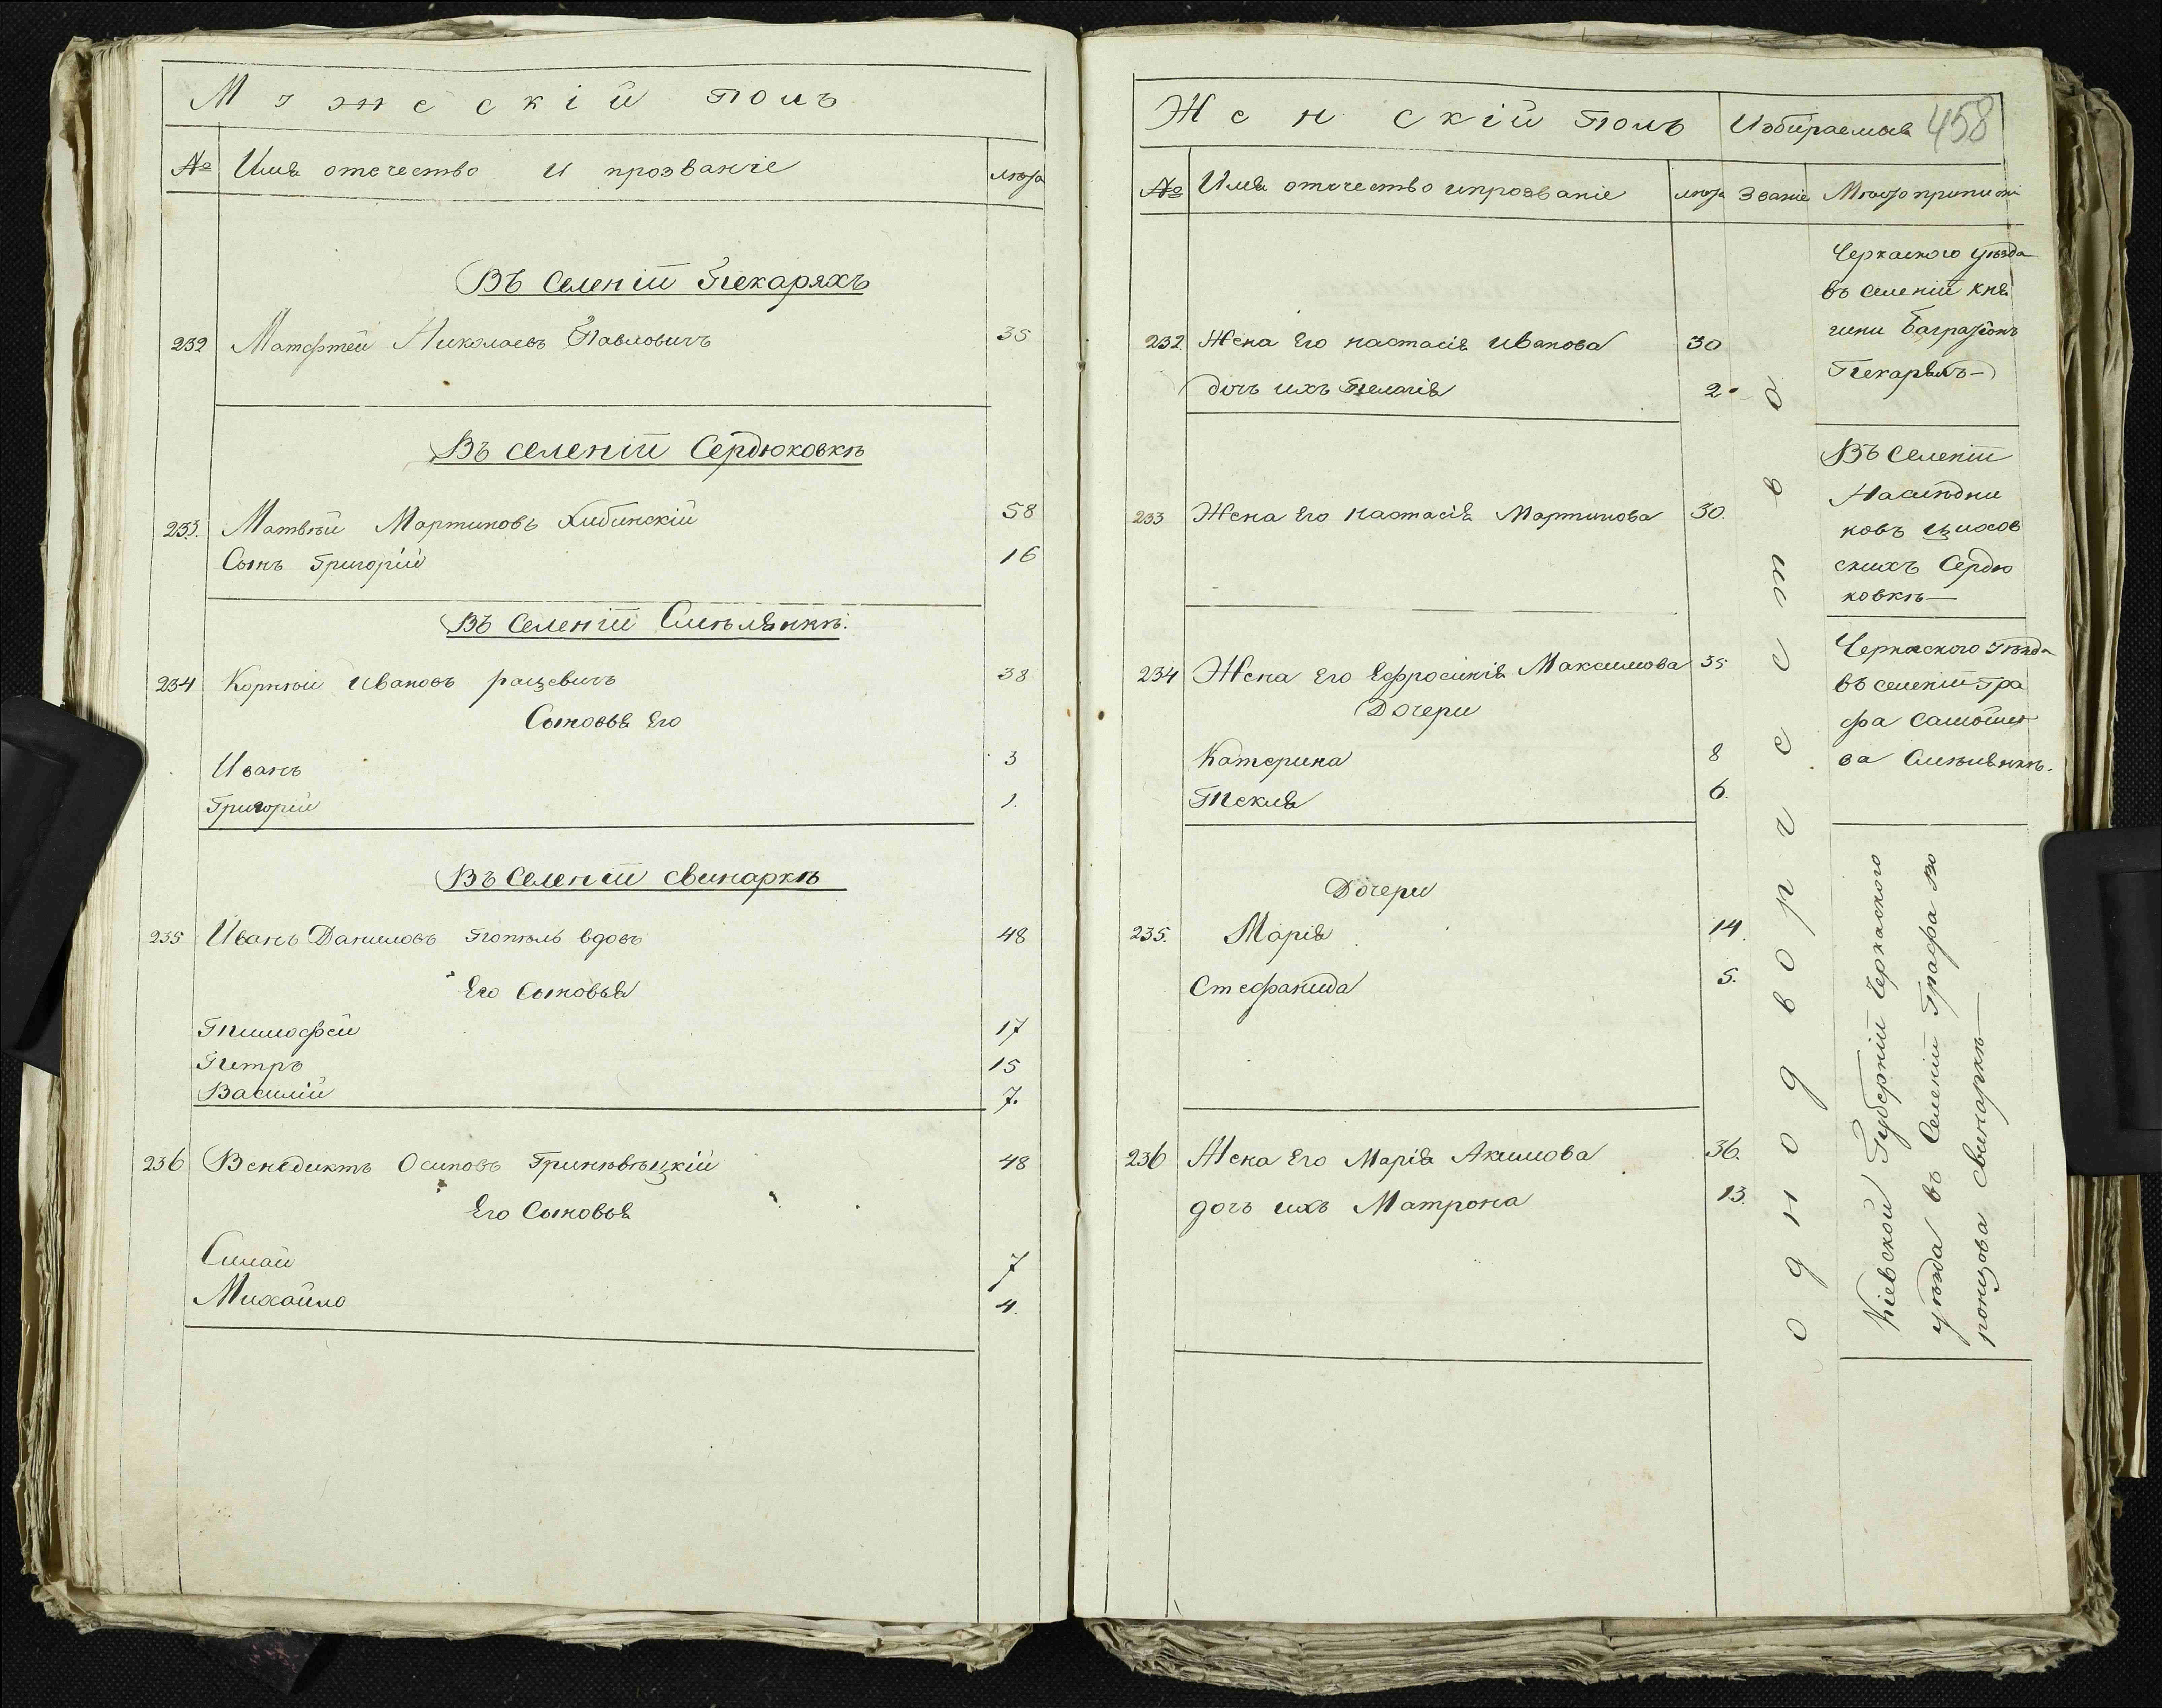 Мужескій полъ
№ Имя отечество и прозваніе лѣта
Въ селеніи Пекаряхъ
232 Матфтей Николаевъ Павловичъ 35
Въ селеніи Сердюковкѣ
233. Матвѣй Мартиновъ Хибинскій 58
Сынъ Григорій 16
Въ селеніи Смѣлянкѣ.
234 Корнѣй Ивановъ рацевичъ 38
Сыновья Его
Иванъ 3
Григорій 1.
Въ селеніи свинаркѣ
235 Иванъ Даниловъ Попѣль вдовъ 48
Его Сыновья
Тимофей 17
Петръ 15
Василій 7.
236 Венедиктъ Осиповъ Гринѣвѣцкій 48
Его Сыновья
Симай 7
Михайло 4.
Женскій полъ Избираемыя 458
№ Имя отечество ипрозваніе лѣта Званіе Мѣсто приписки
232. Жена Его настасія Иванова 30
дочь ихъ Пелагія 2
233 Жена Его настасія Мартинова 30.
234 Жена Его Ефросинія Максимова 35
Дочери
Катерина 8
Текля 6.
Дочери
235. Марія 14.
Стефанида 5.
236 Жена Его Марія Акимова 36.
дочь ихъ Матрона 13.
однодворчество
Черкаского уѣзда
въ селеніи кня
гини Багратіонъ
Пекаряхъ
Въ Селеніи
Наслѣдни
ковъ Цихов
скихъ Сердю
ковкѣ
Черкаского уѣзда
въ селеніи гра
фа Самойло
ва Смѣлянкѣ.
Кіевской Губерніи Черкаского
уѣзда въ Селеніи Графа Во
ронцова свинаркѣ